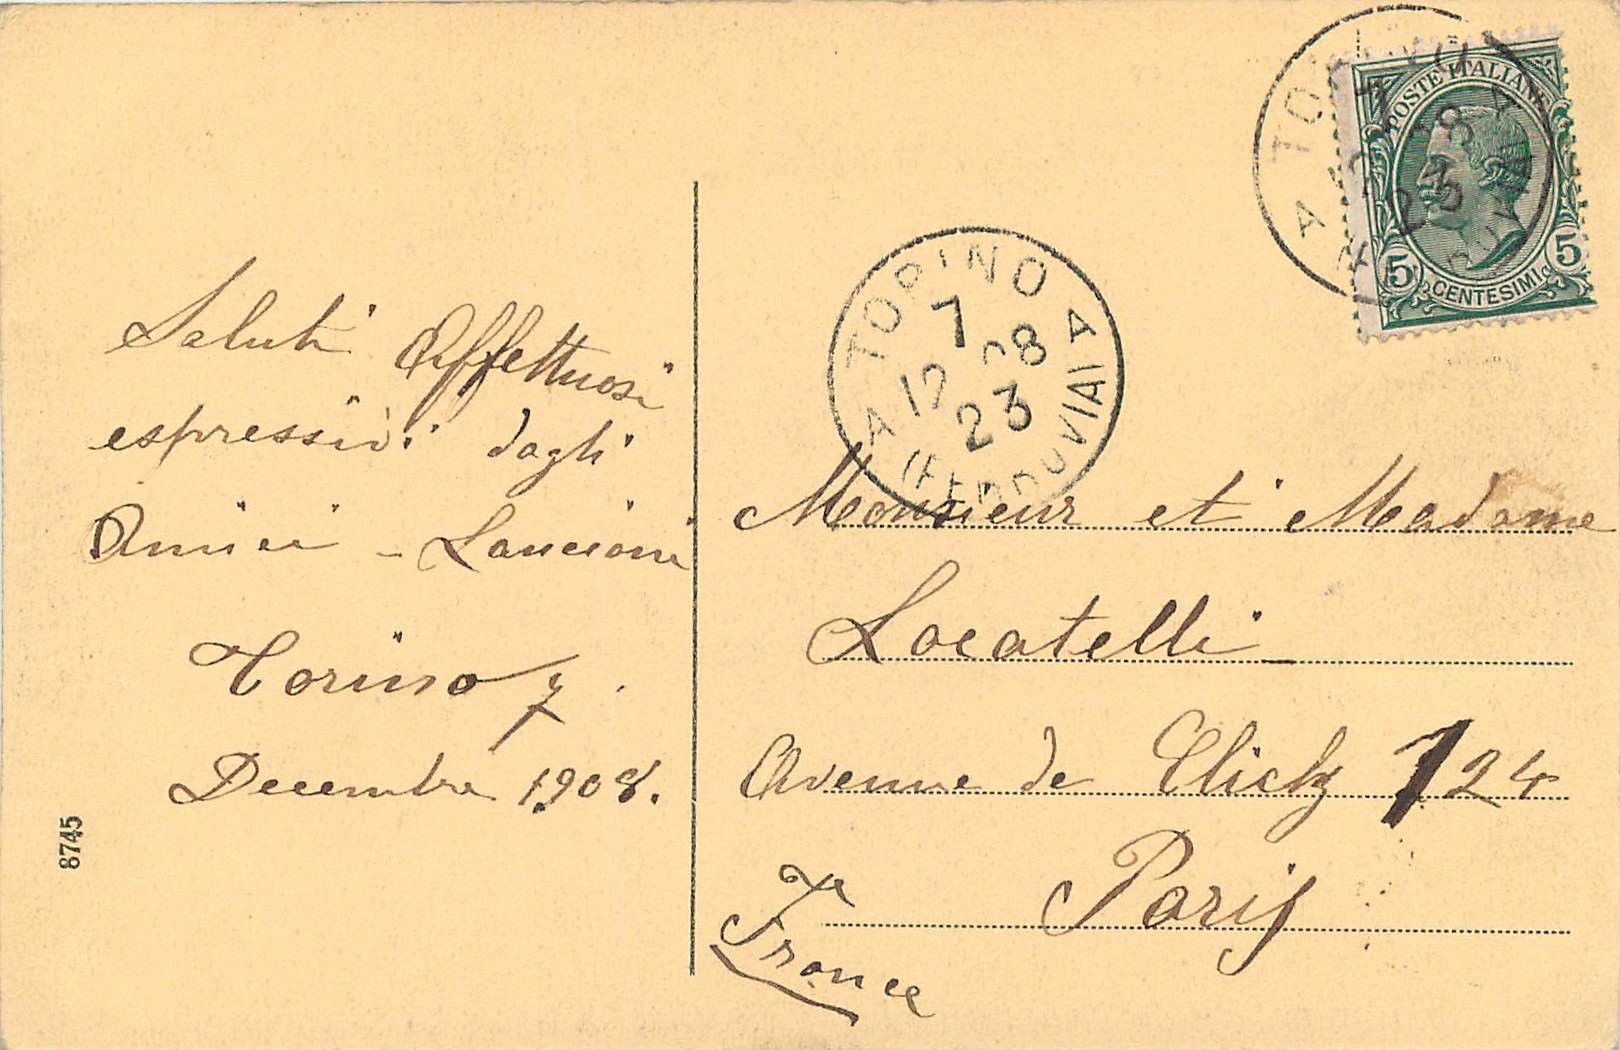 Saluti Affettuosi
espressivi dagli
Amici - Lancioni
Torino 7
Decembre 1908.
8745
TORINO
7
12 08
23
(FERROVIA)
A A
POSTE ITALIANE
5 5
CENTESIMI
TORINO
08
23
A
Monsieur et Madame
Locatelli
Avenue de Clichy 124
Paris
France